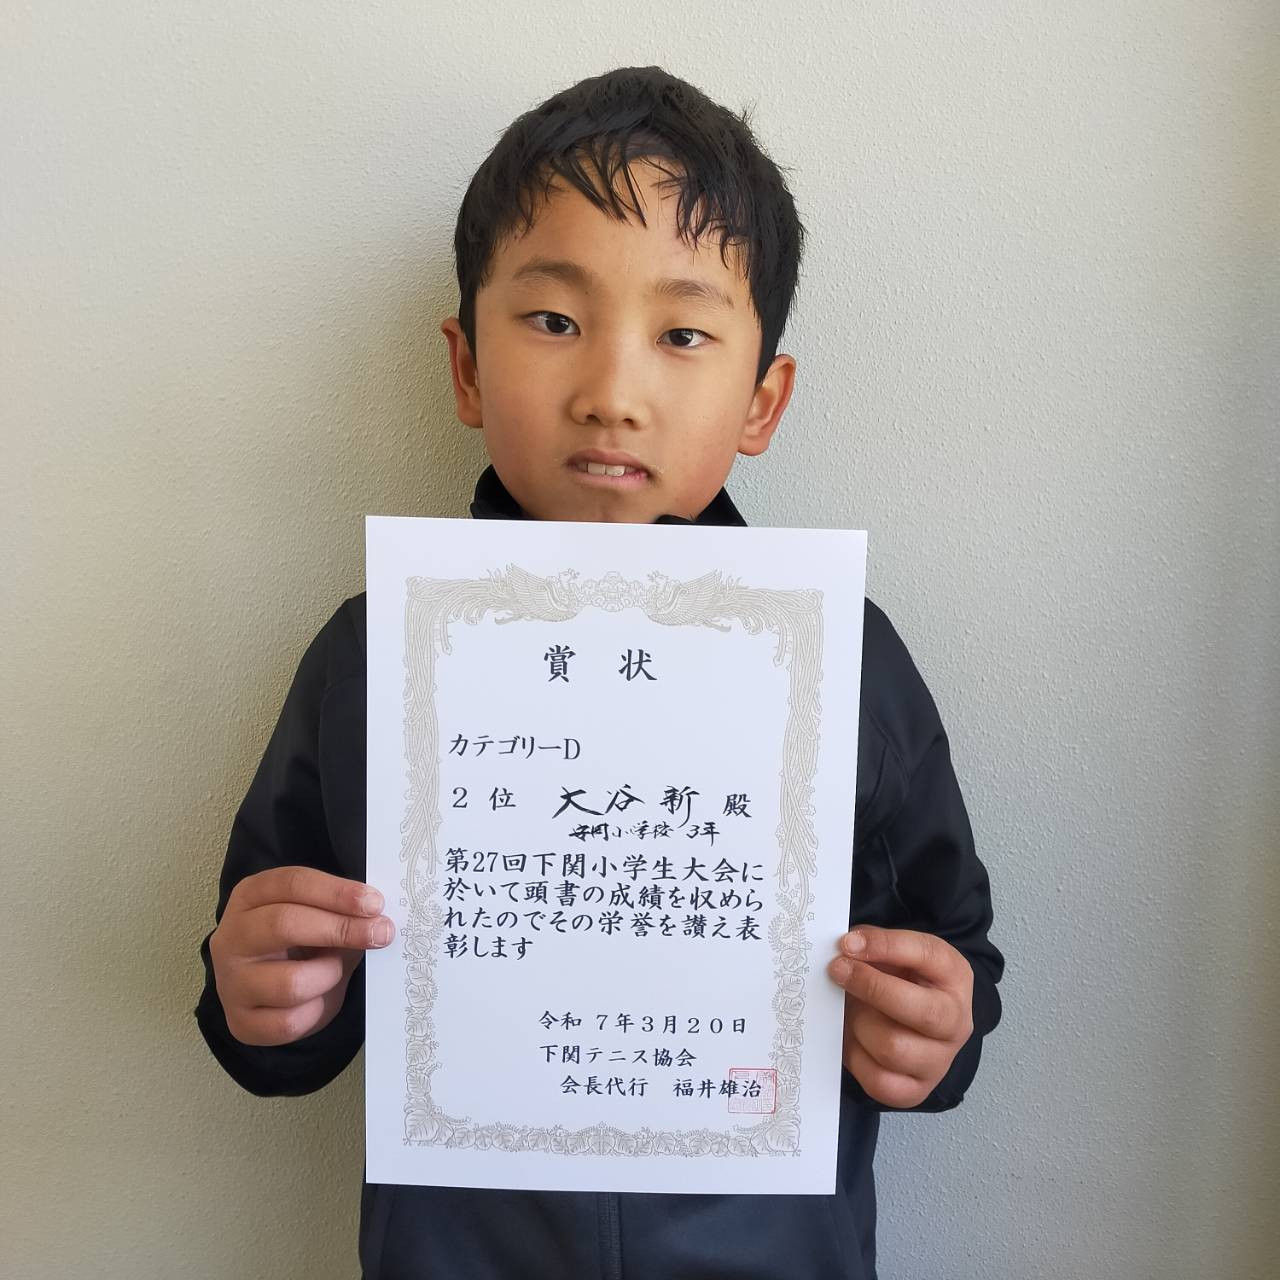 賞 状
カテゴリーD
2 位 大谷 新 殿
安岡小学校 3年
第27回下関小学生大会に
於いて頭書の成績を収めら
れたのでその栄誉を讃え表
彰します
令和 7年3月20日
下関テニス協会
会長代行 福井雄治